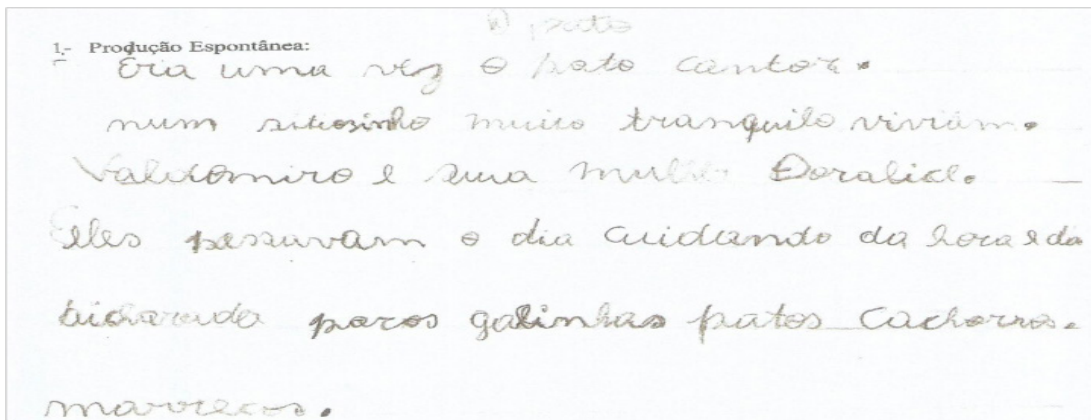 O pato
1- Produção Espontânea:
Era uma vez o pato cantor.
num sitiosinho muito tranquilo viviam.
Valdomiro e sua mulhe Doralice.
Eles pasavam o dia cuidando da hora e da
bicharada porcos galinhas patos cachorros.
marrecos.